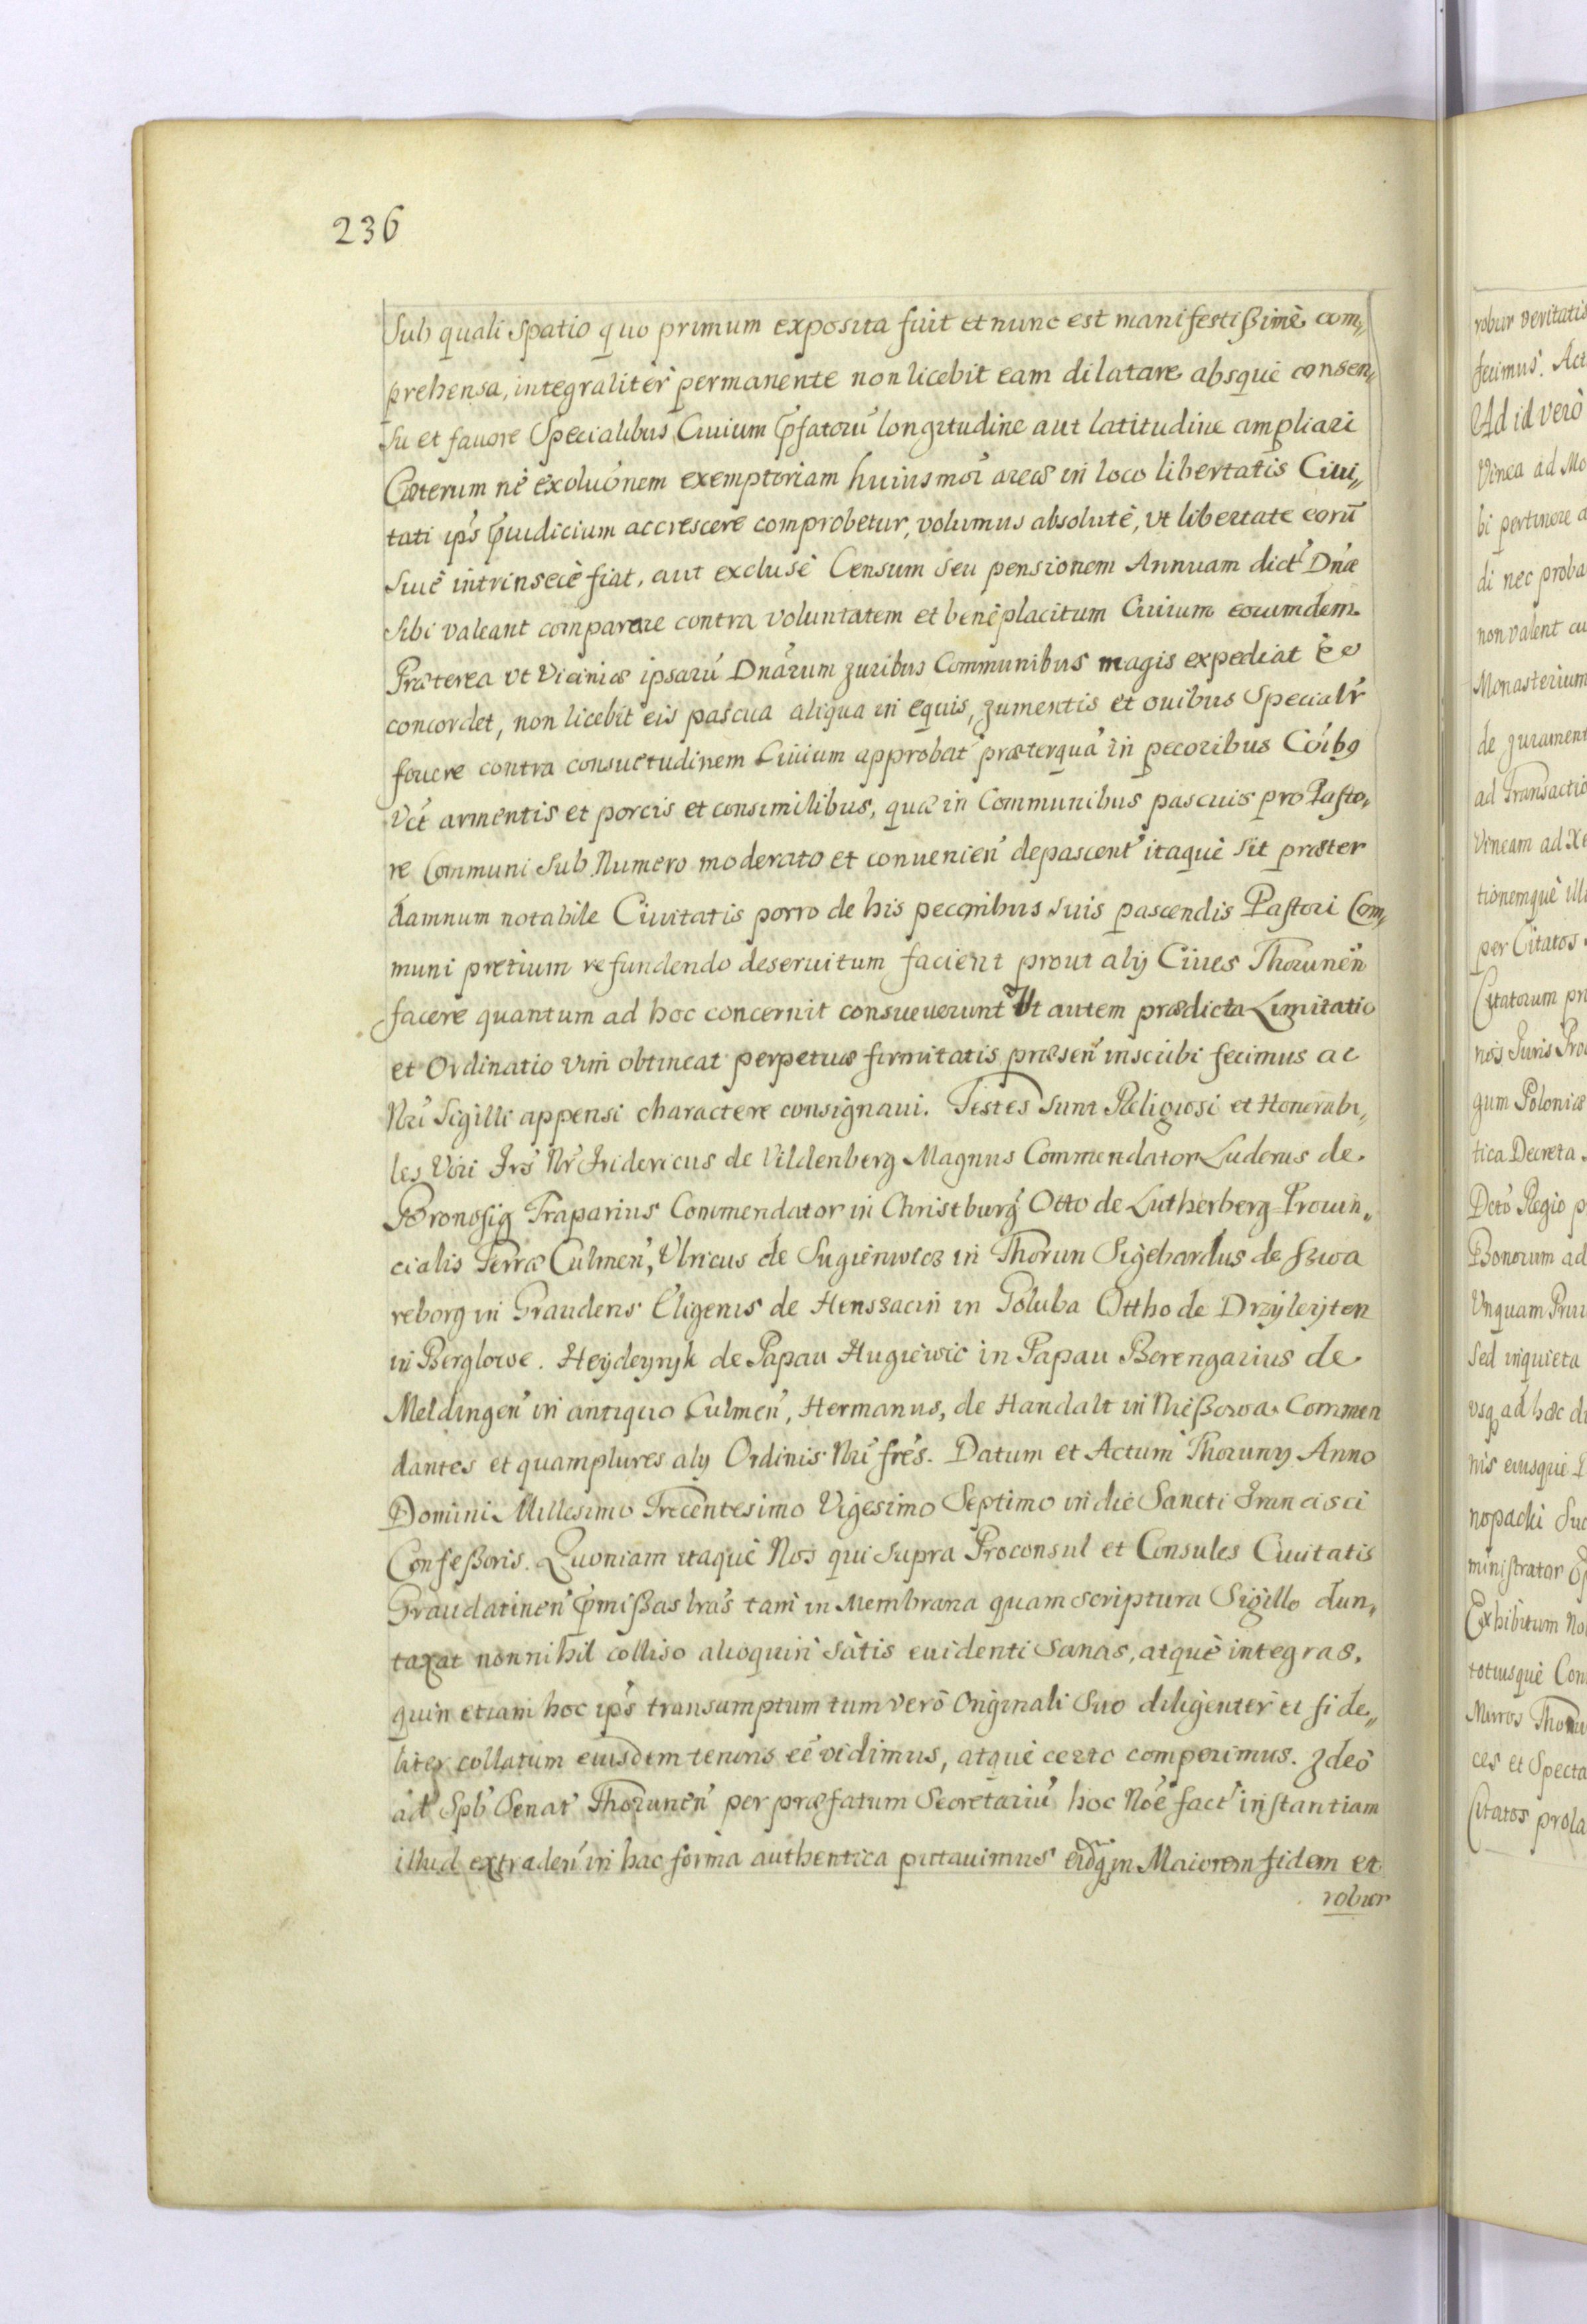 236
Sub quali Spatio quo primum exposita fuit et nunc est manifestißimè com„
prehensa, integraliter permanente non licebit eam dilatare absque consen„
su et fauore Specialibus Ciuium p̃fatorũ longitudine aut latitudine ampliari
Cæterum nè exoluónem exemptoriam huiusmoĩ areæ in loco libertatis Ciui„
tati ip̃s p̃iudicium accrescere comprobetur, volumus absolutè, vt libertate eorũ
Siuè intrinsecè fiat, aut exclusè Censum seu pensionem Annuam dict' Dńæ
Sibi valeant comparare contra voluntatem et beneplacitum Ciuium eorumdem.
Præterea vt Viciniæ ipsarũ Dnãrum juribus Communibus magis expediat
concordet, non licebit eis pascua aliqua in equis, jumentis et ouibus Specialr̃
fouere contra consuetudinem Ciuium approbat' præterquã in pecoribus Cõibg
Vẽt armentis et porcis et consimilibus, quæ in Communibus pascuis pro Pasto„
re Communi sub Numero moderato et conuenien̄ depascent' itaquè sit præter
damnum notabile Ciuitatis porro de his pecoribus suis pascendis Pastori Com„
muni pretium refundendo deseruitum facient prout alij Ciues Thorunen̄
facere quantum ad hoc concernit consueuerunt Vt autem prædicta Limitatio
et Ordinatio vim obtineat perpetuæ firmitatis præsen̄ inscribi fecimus ac
Nrĩ Sigilli appensi charactere consignaui. Testes sunt Religiosi et Honorabi„
les Viri Frs̃ Nr̃ Fridericus de Vildenberg Magnus Commendator Luderus de
Bronosig Traparius Commendator in Christburg Otto de Lutherberg Prouin„
cialis Terræ Culmen̄, Vlricus de Sugienwicz in Thorun Sigehardus de Szwa
reborg in Graudens Eligenis de Henssacin in Goluba Ottho de Drzyleyten
in Berglowe. Heydeynyk de Papau Hugiewic in Papau Berengarius de
Meldingen̄ in antiquo Culmen̄, Hermanus, de Handalt in Nießowa Commen
dantes et quamplures alij Ordinis Nrĩ frẽs. Datum et Actum Thoruny Anno
Domini Millesimo Trecentesimo Vigesimo Septimo in die Sancti Francisci
Confeßoris. Quoniam itaquè Nos qui supra Proconsul et Consules Ciuitatis
Graudatinen̄ p̃mißas lrãs tam in Membrana quam scriptura Sigillo dun„
taxat nonnihil colliso alioquin satis euidenti Sanas, atquè integras,
quin etiam hoc ip̃s transumptum tum verò Originali Suo diligenter et fide„
liter collatum eiusdem tenoris eẽ vidimus, atquè certo comperimus. Ideò
ad Spb̃ Senat' Thorunen̄ per præfatum Secretariũ hoc Nõe fact' instantiam
illud extraden̄ in hac forma authentica putauimus eidq̃ in Maiorem fidem et
robur
robur veritatis
fecimus. Act
Ad id verò
Vinea ad Mo
bi pertinere a
di nec proba
non valent cu
Monasterium
de jurament
ad Transactio
vineam ad
tionemquè ill
per Citatos
Citatorum pr
nois Juris Pro
gum Poloniæ
tica Decreta.
Dctõ Regio p
Bonorum ad
Vnquam Priu
Sed inquieta
vsq ad hæc
nis eiusquè
nopachi Suc
ministrator
Exhibitum No
totiusquè Con
Muros Thoru
ces et Specta
Citatos prola